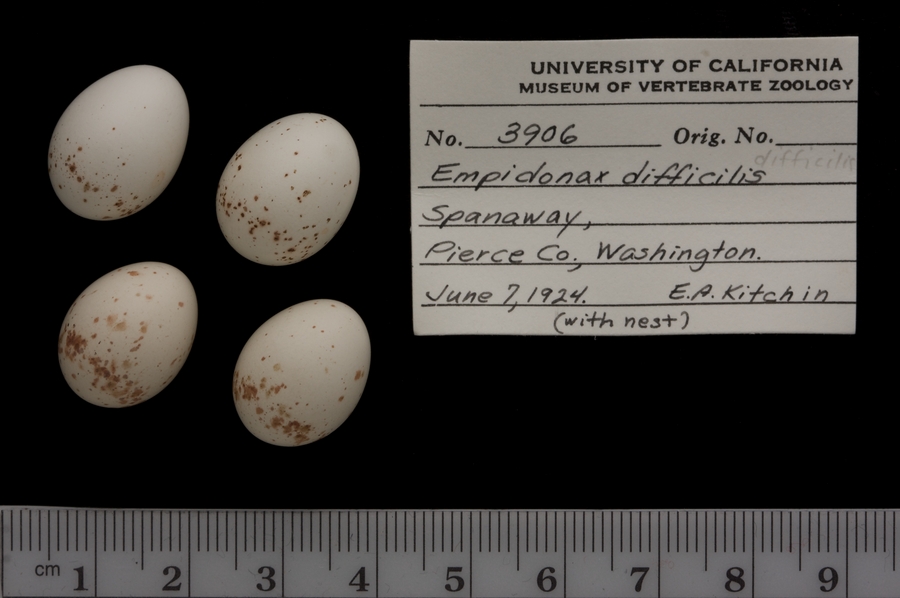 UNIVERSITY OF CALIFORNIA
MUSEUM OF VERTEBRATE ZOOLOGY
No. 3906 Orig. No.
difficilis
Empidonax difficilis
Spanaway,
Pierce Co., Washington.
June 7, 1924. E.A. Kitchin
(with nest)
cm 1 2 3 4 5 6 7 8 9